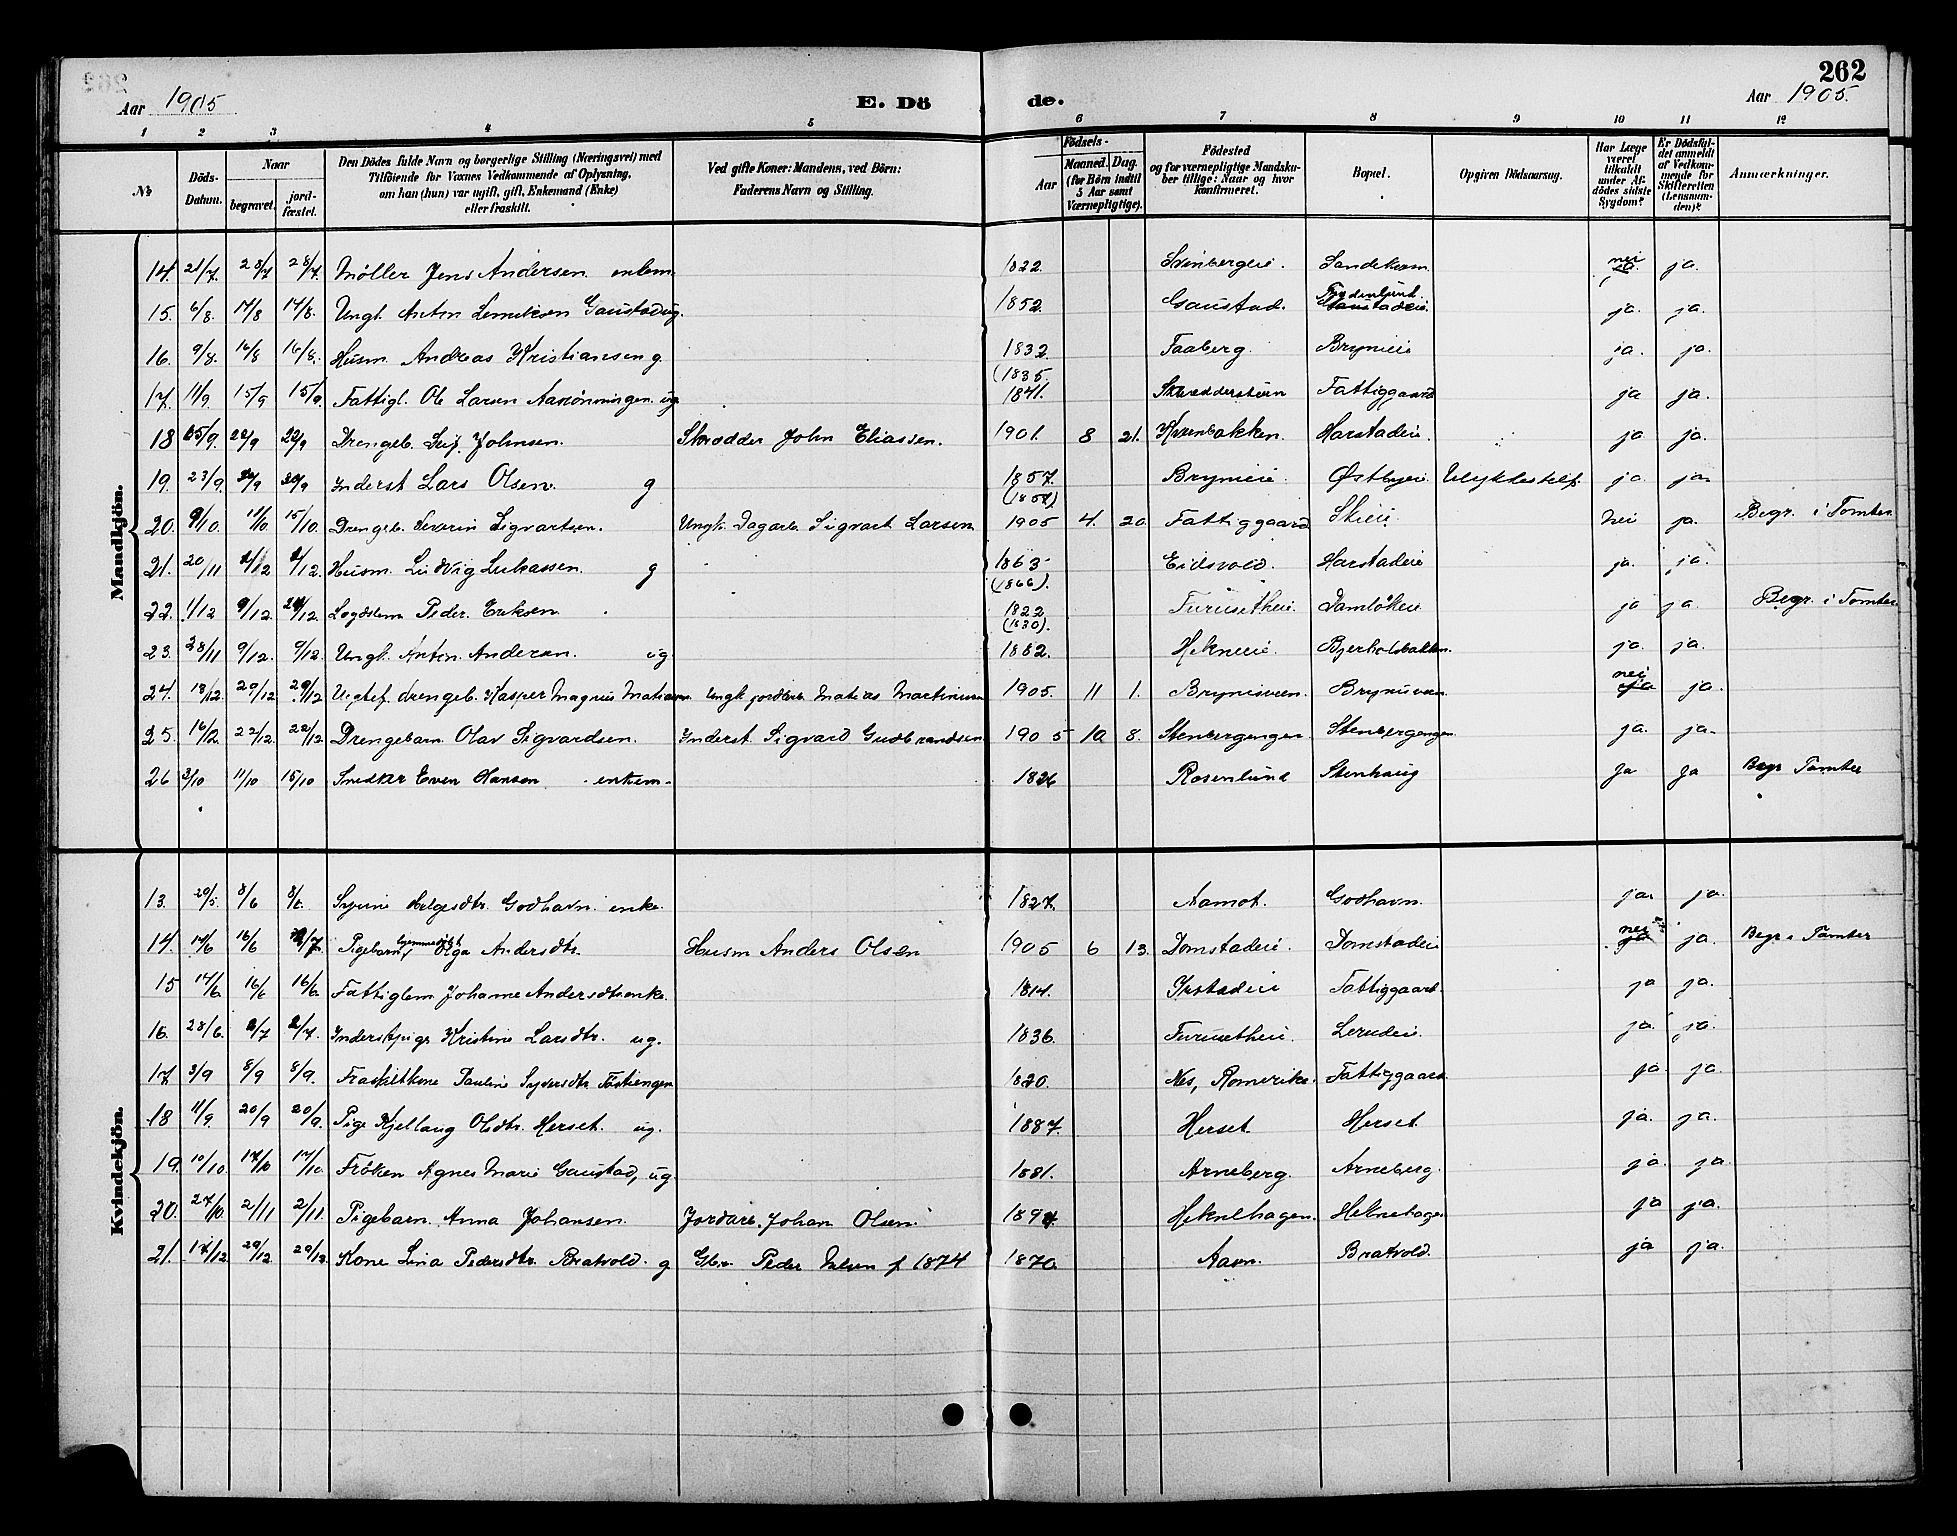 262
Aar 1905 E. Dö
de. Aar 1905.
1 2 3 4 5
6 7 8 9 10 11 12
No
Döds-Datum.
Naar
begravet.
jord-fæstet.
Den Dödes fulde Navn og borgerlige Stilling (Næringsvei) med
Tilföiende for Voxnes Vedkommende af Oplysning,
om han (hun) var ugift, gift, Enkemand (Enke)
eller fraskilt.
Ved gifte Koner: Mandens, ved Börn:
Faderens Navn og Stilling.
Födsels-
Aar
Maaned. Dag.
(for Börn indtil
5 Aar samt
Værnepligtige).
Födested
og for værnepligtige Mandska-
ber tillige: Naar og hvor
konfirmeret.
Bopæl.
Opgiven Dödsaarsag.
Har Læge
været
tilkaldt
under Af-
dödes sidste
Sygdom?
Er Dödsfal-
det anmeldt
af Vedkom-
mende for
Skifteretten
(Lensman-
den)?
Anmærkninger.
Mandkjön.
14. 21/7. 28/7 28/7. Möller Jens Andersen enkem. 1822. Svenbergeie. Sandekvern nei ja. ja.
15. 6/8. 14/8 14/8. Ungk. Anton Gaustad ug. 1852. Gaustad. Gaustadeie. ja. ja.
16. 9/8. 16/8 16/8. Husm. Andreas Kristiansen g. 1832. (1835. Faaberg. Brynieie ja. ja.
17. 11/9. 15/9 15/9. Fattigl. Ole Larsen ug. 1841. Skredderstuen Fattiggaard ja ja.
18 15/9. 22/9 22/9 Drengeb. Leif Johnsen. Skrædder John Eliassen. 1901. 8 21. Kvernbakken. Harstadeie. ja ja.
19. 23/9. 29/9 29/9 Inderst Lars Olsen. g 1857. Brynieie. Østbyeie. Ulykkestilf. ja ja.
20. 9/10. 11/10 15/10. Drengeb. Severin Sigvartsen. Ungk. Dagarb. Sigvart Larsen 1905 4. 20. Fattiggaard Skieie nei ja. Begr. i Tomter
21. 20/11 2/12 2/12. Husm. Ludvig Lukassen. g 1863 (1866). Eidsvold. Harstadeie ja. ja.
22. 1/12 9/12. 24/12. Lægdslem Peder Eriksen. 1822 (1830). Furusetheie. Damlökeie ja ja. Begr. i Tomter
23. 28/11 9/12. 9/12. Ungk. Anton Andersen. ug. 1882. Hekneeie. Bjerkolsbakken. ja. ja.
24. 18/12. 29/12. 29/12 Uegtef. drengeb. Kasper Magnus Matiasen Ungk jordarb Matias Martinusen 1905. 11 1. Brynisveen. Brynisveen nei ja ja.
25. 16/12. 22/12. 22/12. Drengebarn Olav Sigvardsen. Inderst. Sigvard Gudbrandsen 1905 10 8. Stenbergengen. Stenbergengen ja. ja.
26 3/10 11/10 15/10 Snedker Even Hansen enkem. 1826 Rosenlund Stenhaug ja ja Begr Tomter
Kvindekjön.
13. 29/5. 8/6 8/6. Helgesdtr. Godhavn. enke. 1827. Aamot. Godhavn. ja. ja.
14. 14/6 16/6 2/7. Pigebarn, hjemmedöbt Olga Andersdtr. Husm Anders Olsen 1905 6 13. Domstadeie. Domstadeie nei ja ja. Begr i Tomter
15 14/6. 16/6 16/6. Fattiglem Johanne Andersdtr enke. 1814. Fattiggaard. ja ja.
16. 28/6. 2/7 2/7. Inderstpige Kristine Larsdtr. ug. 1836. Furusetheie. Lerudeie. ja. ja.
17 3/9 8/9 8/9. Fraskilt kone Pauline Syversdtr 1820. Nes, Romerike. Fattiggaard. ja. ja.
18 11/9. 20/9 20/9. Pige Kjellaug Olsdtr. Herset. ug. 1887. Herset. Herset. ja. ja.
19. 10/10. 17/10 17/10. Fröken Agnes Marie Gaustad, ug. 1881. Arneberg. Arneberg. ja. ja.
20. 27/10. 2/11 2/11. Pigebarn. Anna Johansen. Jordarb. Johan Olsen. 1894. Heknehagen. Heknehagen ja ja.
21. 14/12. 29/12 29/12. Kone Lina Pedersdtr. Bratvold. g Peder f 1874 1870. Aavn. Bratvold. ja ja.